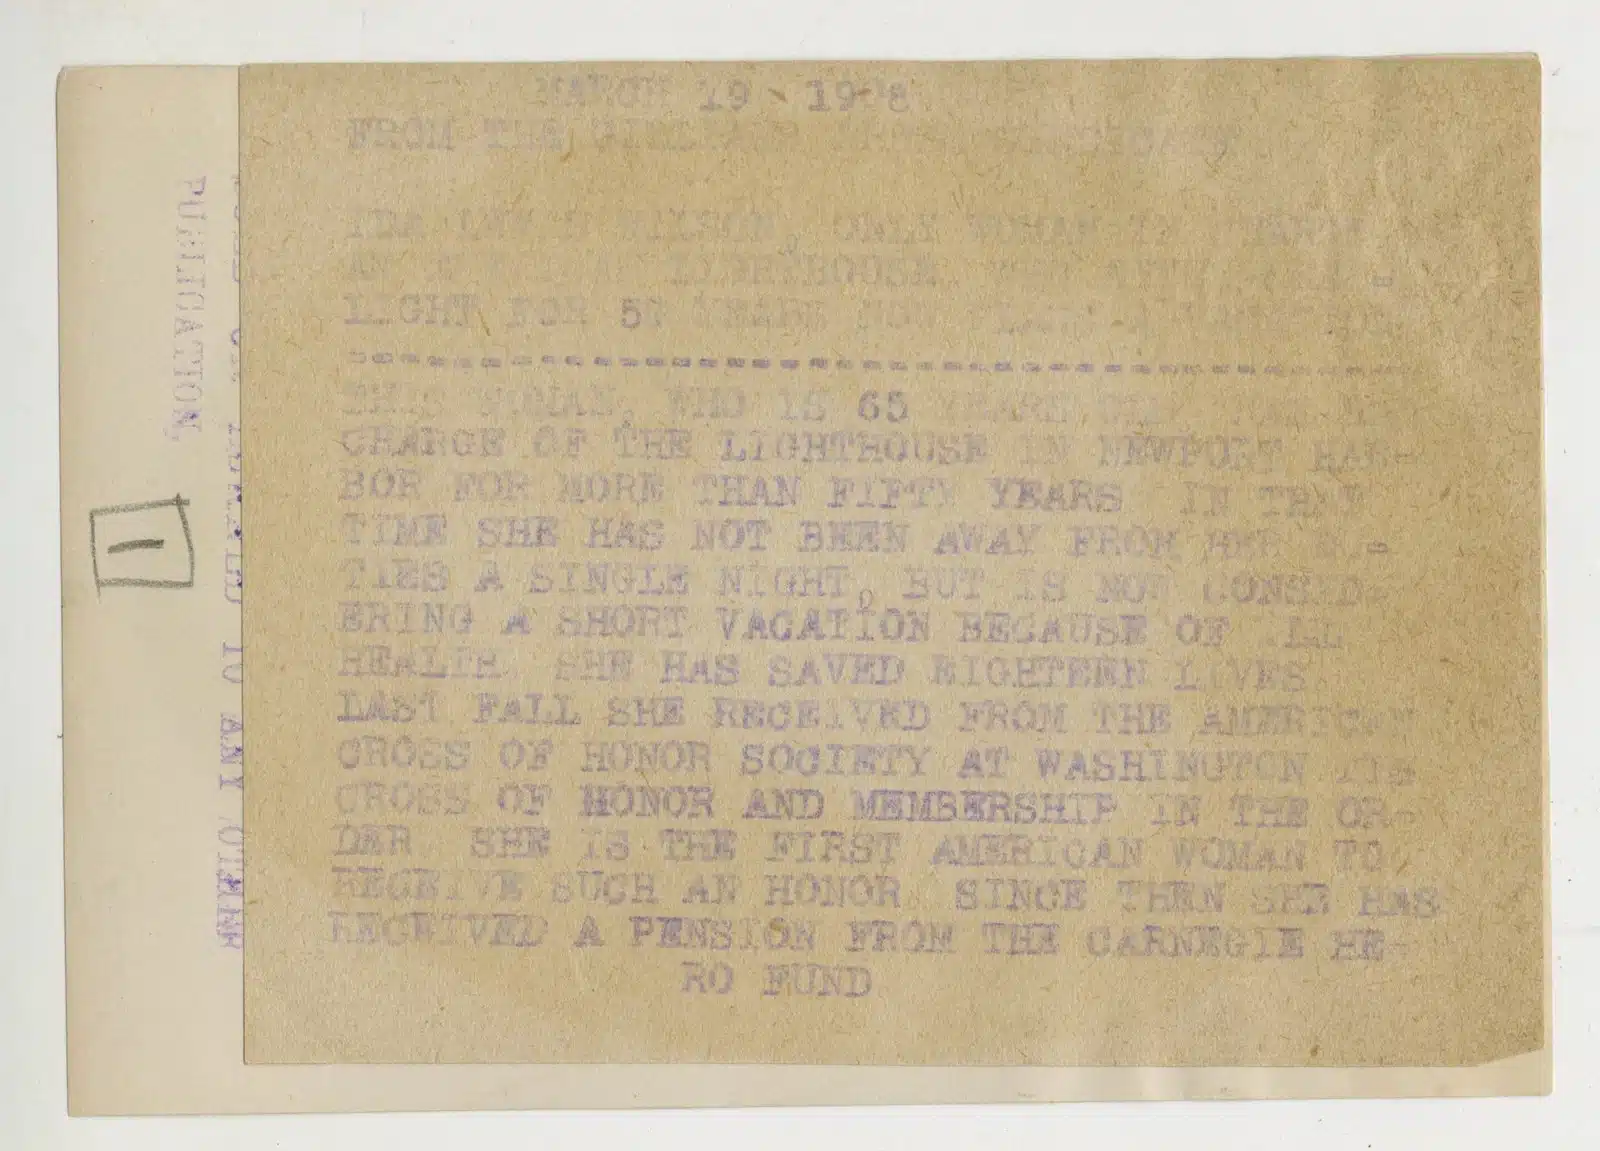 MARCH 19, 19 8
FROM THE
IDA WILSON, ONLY WOMAN
AN LIGHTHOUSE
LIGHT FOR 50 YEARS NOW
THIS WOMAN, WHO IS 65 YEARS OLD
CHARGE OF THE LIGHTHOUSE IN NEWPORT HAR-
BOR FOR MORE THAN FIFTY YEARS IN THAT
TIME SHE HAS NOT BEEN AWAY FROM HER DU-
TIES A SINGLE NIGHT, BUT IS NOW CONSID
ERING A SHORT VACATION BECAUSE OF ILL
HEALTH SHE HAS SAVED EIGHTEEN LIVES
LAST FALL SHE RECEIVED FROM THE AMERICAN
CROSS OF HONOR SOCIETY AT WASHINGTON
CROSS OF HONOR AND MEMBERSHIP IN THE OR-
DER SHE IS THE FIRST AMERICAN WOMAN TO
RECEIVE SUCH AN HONOR SINCE THEN SHE HAS
RECEIVED A PENSION FROM THE CARNEGIE HE-
RO FUND
OR TO ANY OTHER
PUBLICATION.
1